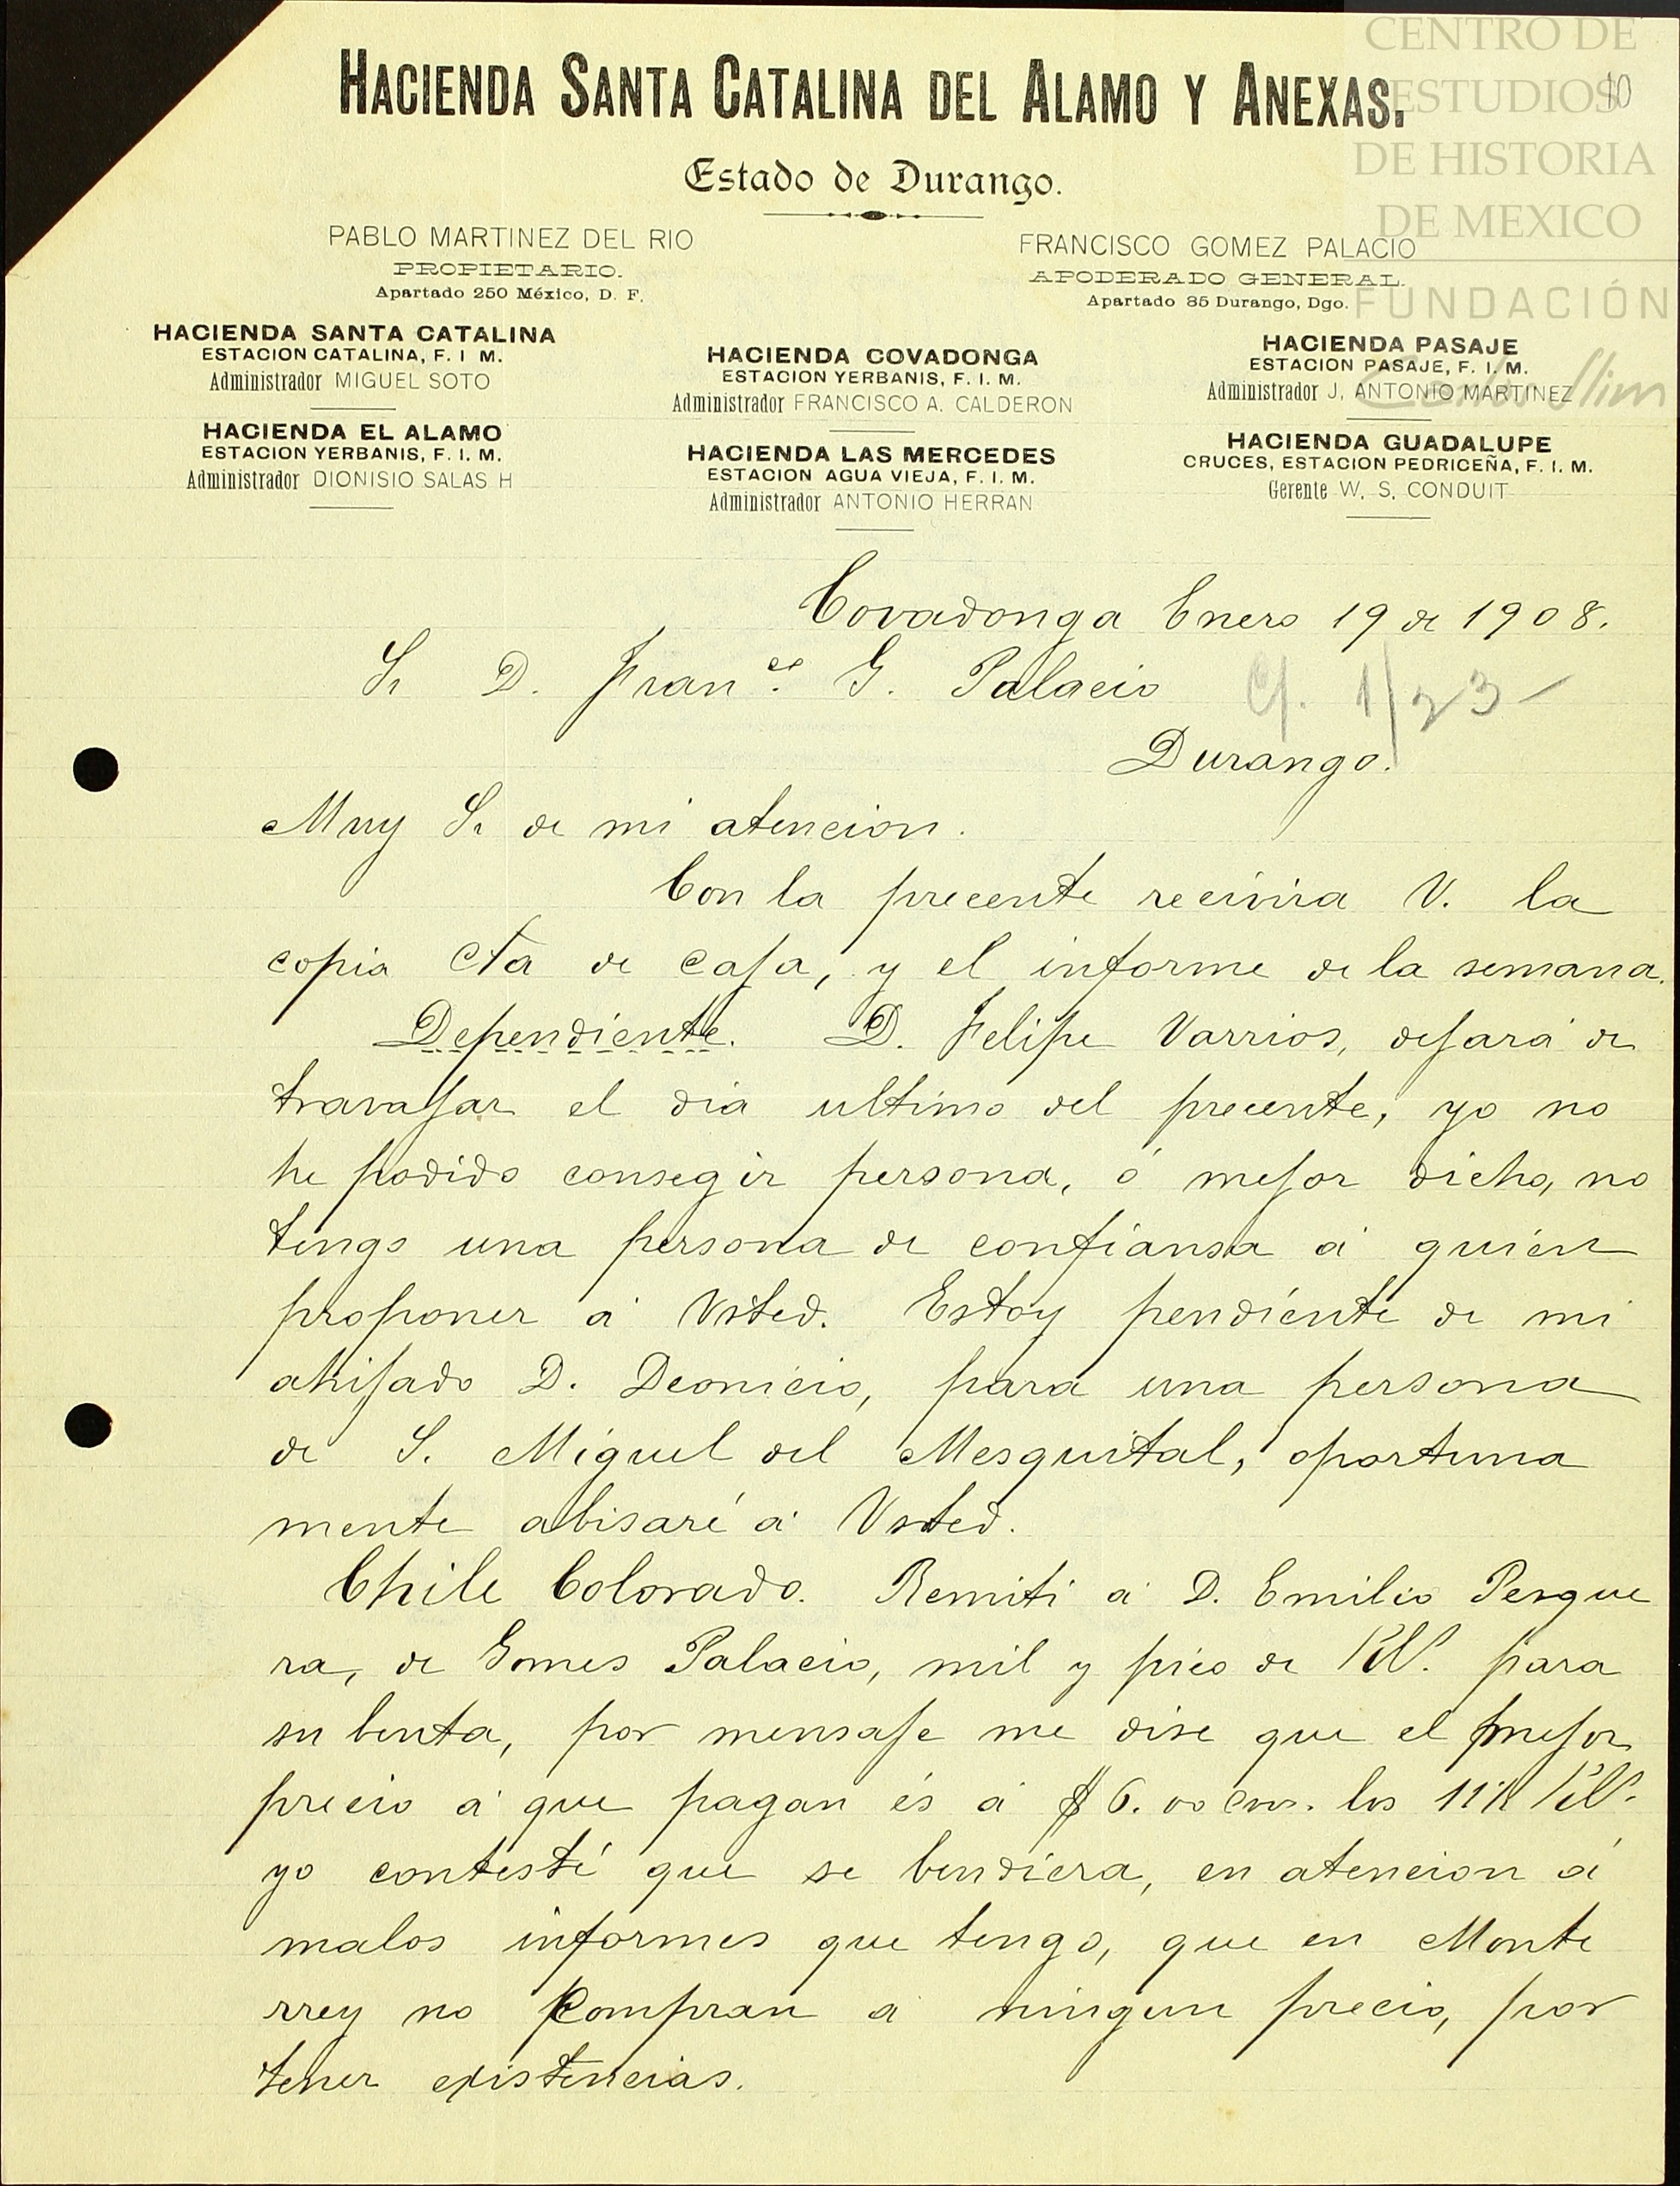 HACIENDA SANTA CATALINA DEL ALAMO Y ANEXAS.
Estado de Durango.
PABLO MARTINEZ DEL RIO
PROPIETARIO.
Apartado 250 México, D. F.
FRANCISCO GOMEZ PALACIO
APODERADO GENERAL.
Apartado 85 Durango, Dgo.
HACIENDA SANTA CATALINA
ESTACION CATALINA, F. I M.
Administrador MIGUEL SOTO
HACIENDA EL ALAMO
ESTACION YERBANIS, F. I. M.
Administrador DIONISIO SALAS H
HACIENDA COVADONGA
ESTACION YERBANIS, F. I. M.
Administrador FRANCISCO A. CALDERON
HACIENDA LAS MERCEDES
ESTACION AGUA VIEJA, F. I. M.
Administrador ANTONIO HERRAN
HACIENDA PASAJE
ESTACION PASAJE, F. I. M.
Administrador J. ANTONIO MARTINEZ
HACIENDA GUADALUPE
CRUCES, ESTACION PEDRICEÑA, F. I. M.
Gerente W. S. CONDUIT
CENTRO DE
ESTUDIOS
DE HISTORIA
DE MEXICO
FUNDACIÓN
Carlos Slim
10
Covadonga Enero 19 de 1908.
Sr D. Franco. G. Palacio
1/23
Durango.
Muy Sr de mi atencion.
Con la precente recivira V. la
copia Cta de Caja, y el informe de la semana.
Dependiente. D. Felipe Varrios, dejará de
travajar el dia ultimo del precente, yo no
he podido consegir persona, ó mejor dicho, no
tengo una persona de confiansa á quien
proponer á Usted. Estoy pendiente de mi
ahijado D. Deonicio, para una persona
de S. Miguel del Mesquital, oportuna
mente abisaré á Usted.
Chile Colorado. Remiti á D. Emilio Pesque
ra, de Gomes Palacio, mil y pico de Kil. para
su benta, por mensaje me dise que el mejor
precio á que pagan és á $6.00 cvs. los 11½ Kil.
yo contesté que se bendiera, en atencion á
malos informes que tengo, que en Monte
rrey no Compran a ningun precio, por
tener existencias.